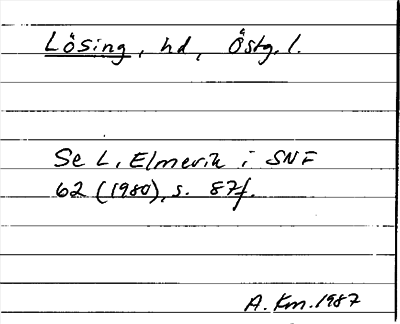 Lösing, hd, Östg. l.
Se L. Elmevik i SNF
62 (1980), s. 87f.
A. Km. 1987